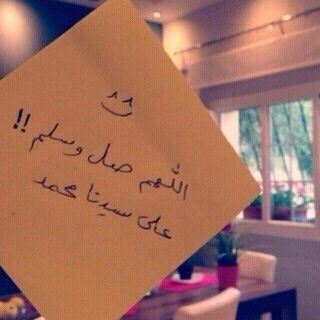 اللهم صل وسلم !!
على سيدنا محمد